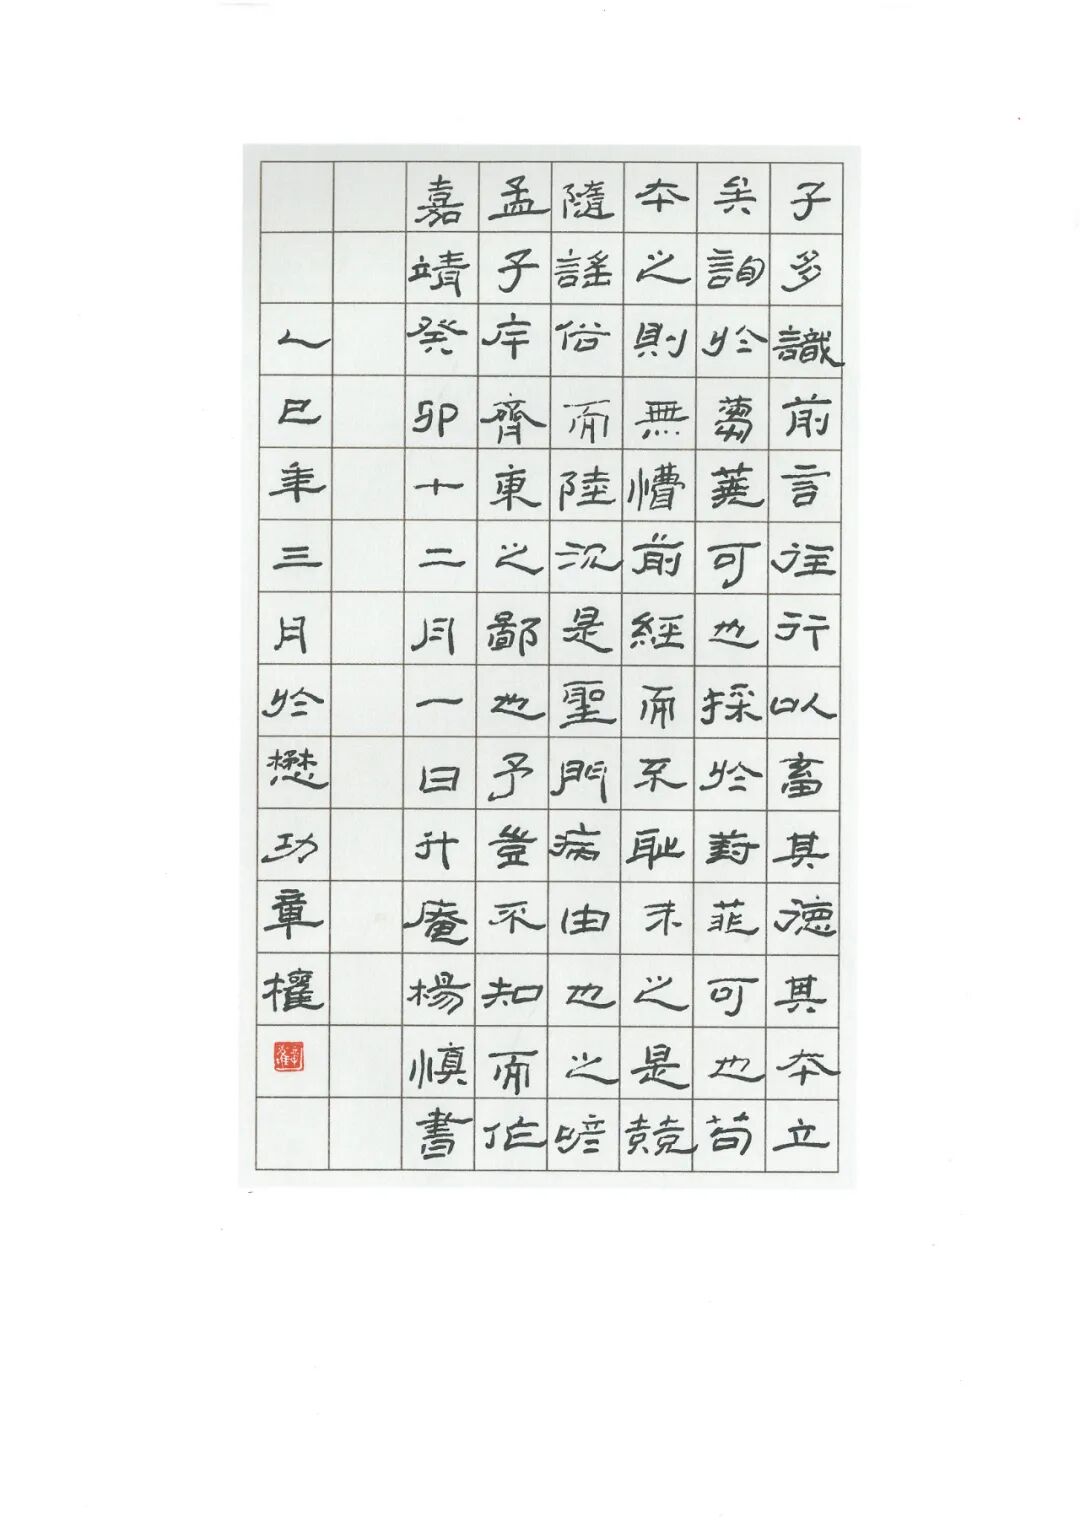 子多識前言往行以畜其德其本立
矣詢於蒭蕘可也採於葑菲可也苟
本之則無懵前經而不耻末之是競
隨謠俗而陸沉是聖門病由也之喭
孟子斥齊東之鄙也予豈不知而作
嘉靖癸卯十二月一日升庵楊慎書
乙巳年三月於懋功章權